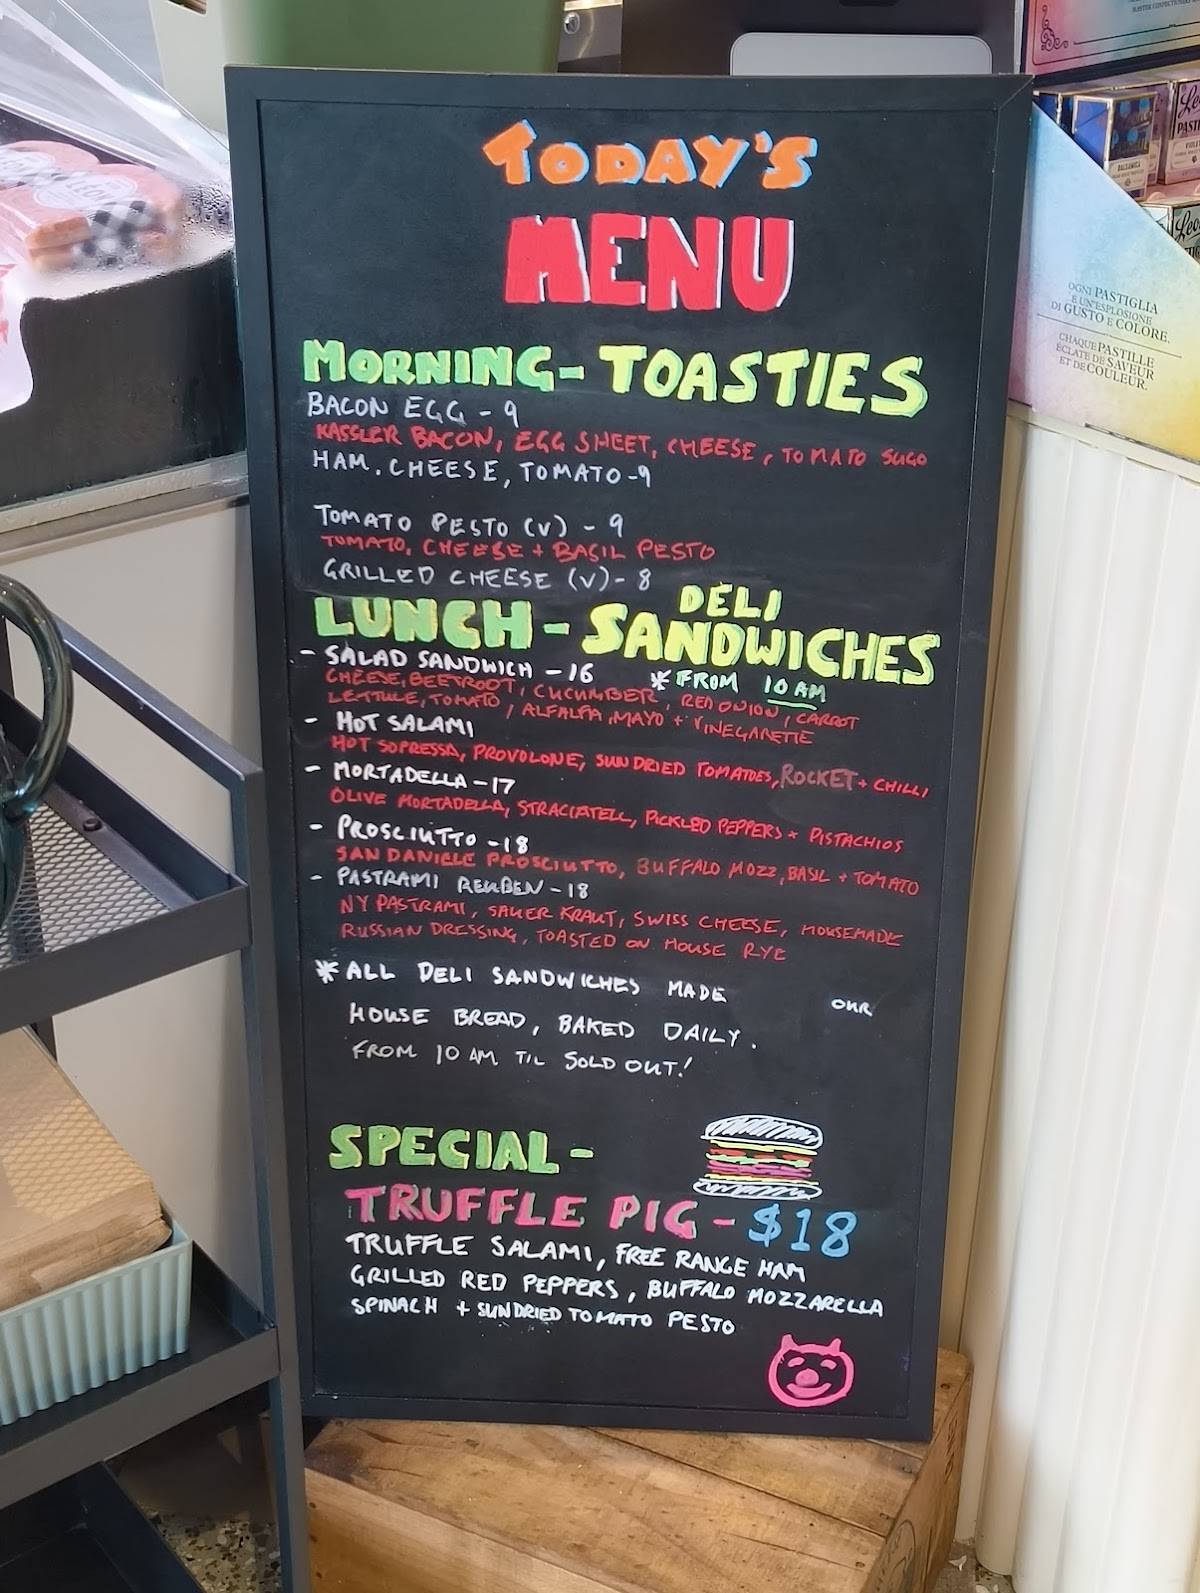 TODAY'S
MENU
MORNING - TOASTIES
BACON EGG - 9
KASSLER BACON, EGG SHEET, CHEESE, TOMATO SUGO
HAM. CHEESE, TOMATO - 9
TOMATO PESTO (V) - 9
TOMATO, CHEESE + BASIL PESTO
GRILLED CHEESE (V) - 8
LUNCH - DELI SANDWICHES
- SALAD SANDWICH - 16 * FROM 10 AM
CHEESE, BEETROOT, CUCUMBER, RED ONION, CARROT
LETTUCE, TOMATO, ALFALFA, MAYO + VINEGARETTE
- HOT SALAMI
HOT SOPRESSA, PROVOLONE, SUNDRIED TOMATOES, ROCKET + CHILLI
- MORTADELLA - 17
OLIVE MORTADELLA, STRACIATELL, PICKLED PEPPERS + PISTACHIOS
- PROSCIUTTO - 18
SAN DANIELE PROSCIUTTO, BUFFALO MOZZ, BASIL + TOMATO
- PASTRAMI REUBEN - 18
NY PASTRAMI, SAUER KRAUT, SWISS CHEESE, HOUSEMADE
RUSSIAN DRESSING, TOASTED ON HOUSE RYE
* ALL DELI SANDWICHES MADE OUR
HOUSE BREAD, BAKED DAILY.
FROM 10 AM TIL SOLD OUT!
SPECIAL -
TRUFFLE PIG - $18
TRUFFLE SALAMI, FREE RANGE HAM
GRILLED RED PEPPERS, BUFFALO MOZZARELLA
SPINACH + SUNDRIED TOMATO PESTO
OGNI PASTIGLIA
È UN'ESPLOSIONE
DI GUSTO E COLORE.
CHAQUE PASTILLE
ÉCLATE DE SAVEUR
ET DE COULEUR.